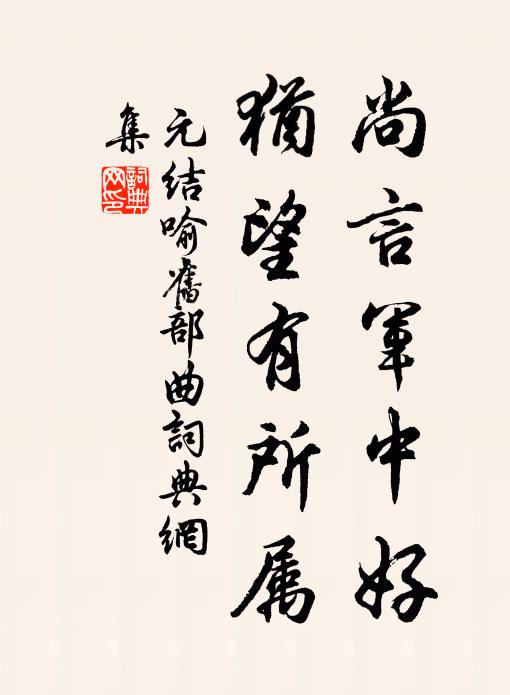 尚言軍中好
猶望有所属
元结喻舊部曲詞典網
集
詞典
网印